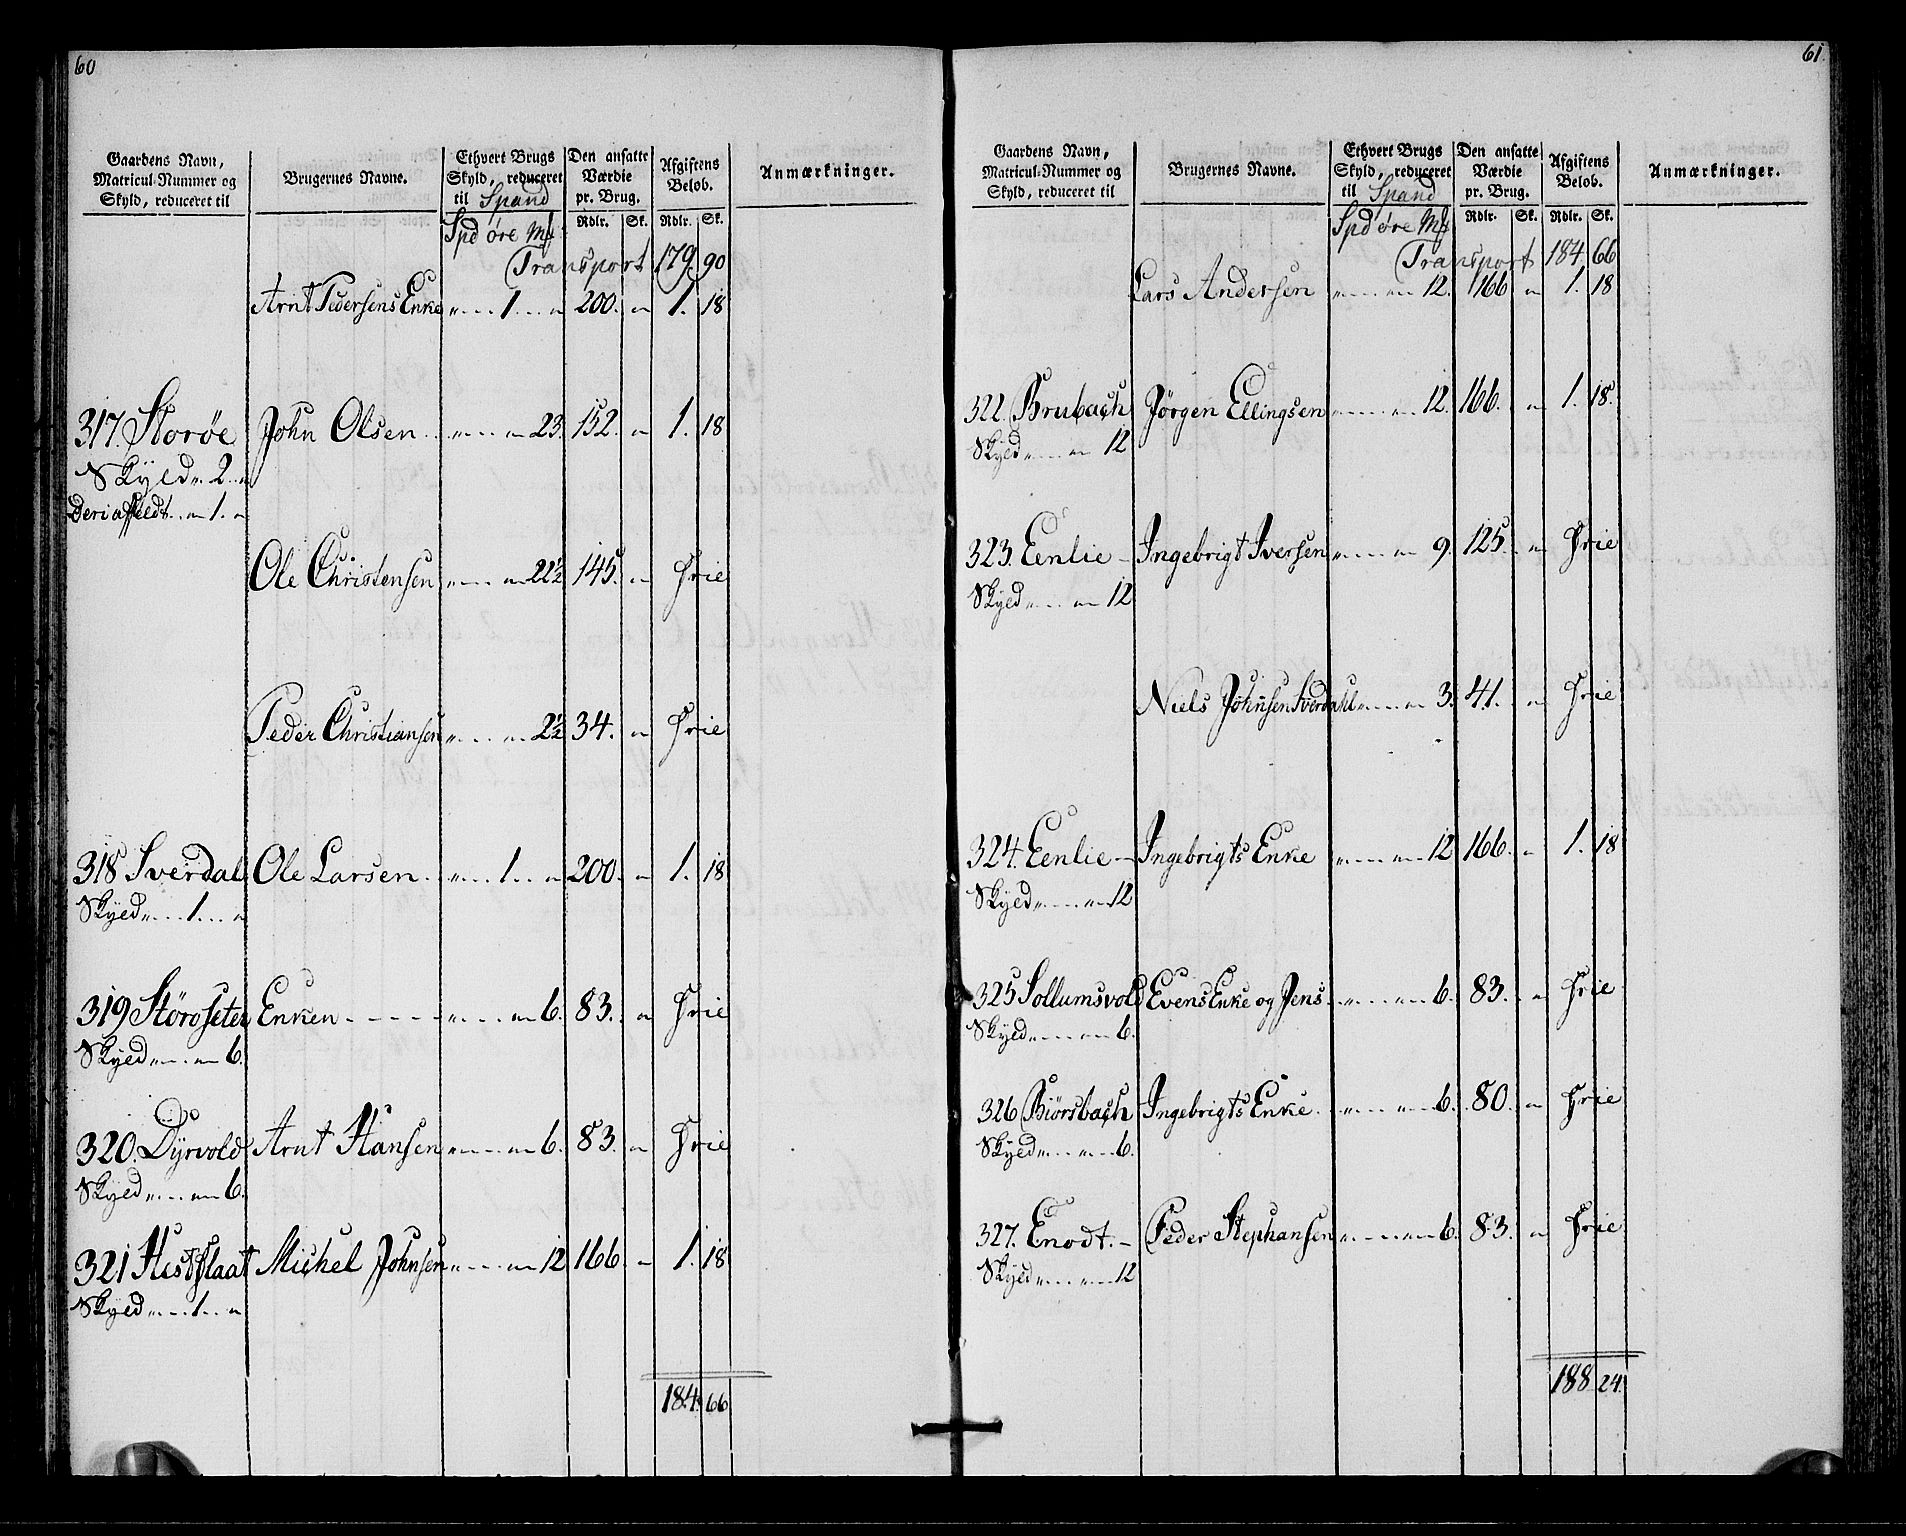 60
Gaardens Navn, Matricul-Nummer og Skyld, reduceret til
Brugernes Navne.
Ethvert Brugs Skyld, reduceret til Spand
Den ansatte Værdie pr. Brug.
Afgiftens Beløb.
Anmærkninger.
Spd øre Mk Rdlr. Sk. Rdlr. Sk.
Transport 179. 90
Arnt Pedersens Enke „ 1 „ 200. „ 1. 18
317. Storøe John Olsen „ „ 23. 152. „ 1. 18
Skyld „ 2 „
Deri affeldt „ 1. „
Ole Christensen „ „ 22½ 145. „ Frie
Peder Christiansen „ „ 2½ 34. „ Frie
318 Sverdal Ole Larsen „ 1 „ 200. „ 1. 18
Skyld „ 1 „
319 Störoseter Enken „ „ 6. 83. „ Frie
Skyld „ „ 6.
320. Dÿrvold Arnt Hansen „ „ 6. 83. „ Frie
Skyld „ „ 6.
321 Hestflaat Michel Johnsen „ „ 12 166. „ 1. 18
Skyld „ 1 „
184. 66
61.
Gaardens Navn, Matricul-Nummer og Skyld, reduceret til
Brugernes Navne.
Ethvert Brugs Skyld, reduceret til Spand
Den ansatte Værdie pr. Brug.
Afgiftens Beløb.
Anmærkninger.
Spd øre Mk Rdlr. Sk. Rdlr. Sk.
Transport 184. 66
Lars Andersen „ „ 12. 166 „ 1. 18
322. Brubach Jörgen Ellingsen „ „ 12. 166. „ 1. 18.
Skyld „ „ 12
323. Eenlie Ingebrigt Iversen „ „ 9. 125. „ Frie
Skyld „ „ 12
Niels Johnsen Sverdahl „ „ 3. 41. „ Frie
324. Eenlie Ingebrigts Enke „ „ 12 166. „ 1. 18
Skyld „ „ 12
325 Sollumsvold Evens Enke og Jens „ „ 6. 83. „ Frie
Skyld „ „ 6.
326 Biörsbach Ingebrigts Enke „ „ 6. 80. „ Frie
Skyld „ „ 6.
327. Enodt. Peder Stephansen „ „ 6. 83. „ Frie
Skyld „ „ 12
188 24.